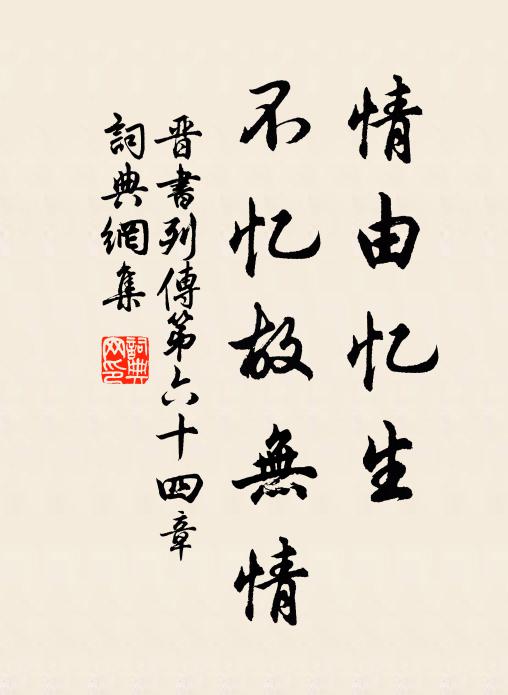 情由忆生
不忆故無情
晋書列傳第六十四章
詞典網集
詞典
网印